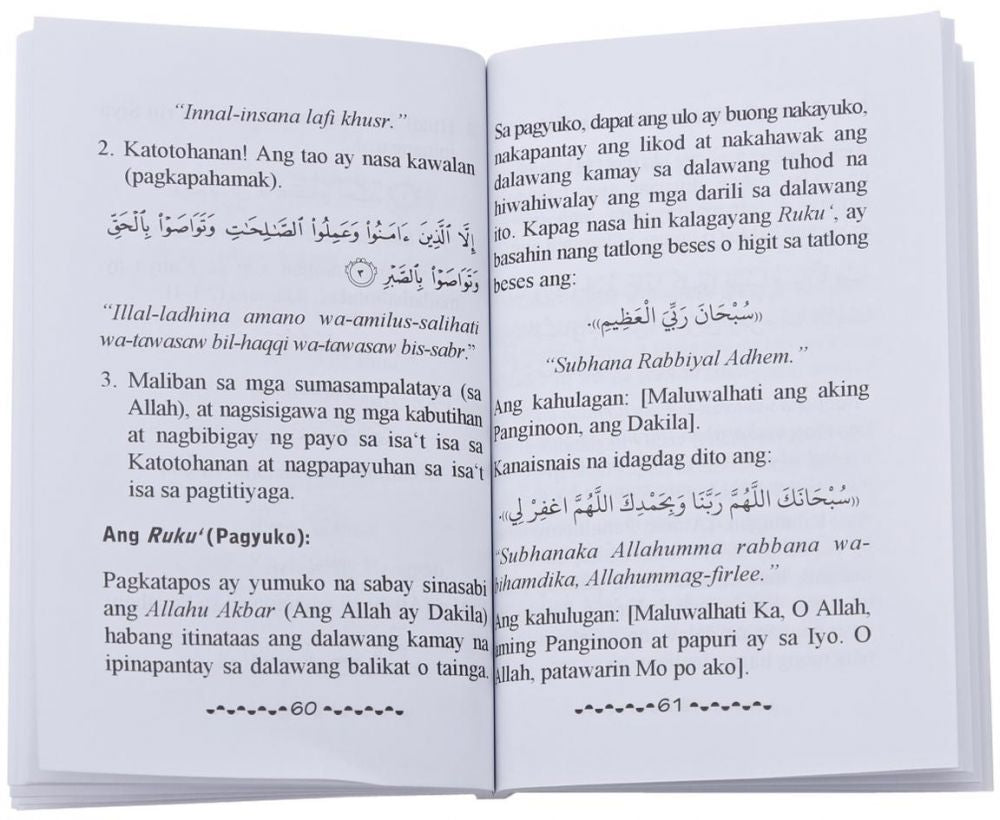 “Innal-insana lafi khusr.”
2. Katotohanan! Ang tao ay nasa kawalan
(pagkapahamak).
إِلَّا ٱلَّذِينَ ءَامَنُوا۟ وَعَمِلُوا۟ ٱلصَّـٰلِحَـٰتِ وَتَوَاصَوْا۟ بِٱلْحَقِّ
وَتَوَاصَوْا۟ بِٱلصَّبْرِ ٣
“Illal-ladhina amano wa-amilus-salihati
wa-tawasaw bil-haqqi wa-tawasaw bis-sabr.”
3. Maliban sa mga sumasampalataya (sa
Allah), at nagsisigawa ng mga kabutihan
at nagbibigay ng payo sa isa‘t isa sa
Katotohanan at nagpapayuhan sa isa‘t
isa sa pagtitiyaga.
Ang Ruku‘ (Pagyuko):
Pagkatapos ay yumuko na sabay sinasabi
ang Allahu Akbar (Ang Allah ay Dakila)
habang itinataas ang dalawang kamay na
ipinapantay sa dalawang balikat o tainga.
60
Sa pagyuko, dapat ang ulo ay buong nakayuko,
nakapantay ang likod at nakahawak ang
dalawang kamay sa dalawang tuhod na
hiwahiwalay ang mga darili sa dalawang
ito. Kapag nasa hin kalagayang Ruku‘, ay
basahin nang tatlong beses o higit sa tatlong
beses ang:
((سُبْحَانَ رَبِّيَ الْعَظِيمِ)).
“Subhana Rabbiyal Adhem.”
Ang kahulagan: [Maluwalhati ang aking
Panginoon, ang Dakila].
Kanaisnais na idagdag dito ang:
((سُبْحَانَكَ اللَّهُمَّ رَبَّنَا وَبِحَمْدِكَ اللَّهُمَّ اغْفِرْ لِي)).
“Subhanaka Allahumma rabbana wa-
bihamdika, Allahummag-firlee.”
Ang kahulugan: [Maluwalhati Ka, O Allah,
aming Panginoon at papuri ay sa Iyo. O
Allah, patawarin Mo po ako].
61